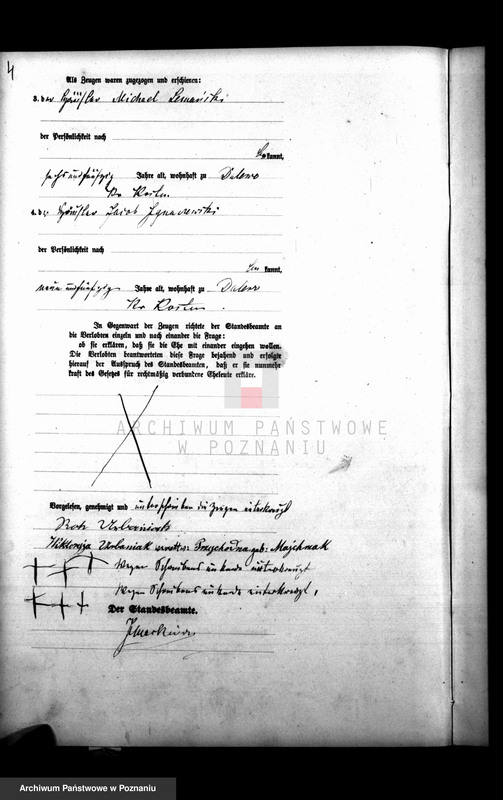 4
Als Zeugen waren zugezogen und erschienen:
3. der Häusler Michael Lemański
der Persönlichkeit nach
be kannt,
sechs und fünfzig Jahre alt, wohnhaft zu Dalewo
Kr. Kosten.
4. der Häusler Jacob Ignaczewski
der Persönlichkeit nach
be kannt,
neun und fünfzig Jahre alt, wohnhaft zu Dalewo
Kr. Kosten.
In Gegenwart der Zeugen richtete der Standesbeamte an
die Verlobten einzeln und nach einander die Frage:
ob sie erklären, daß sie die Ehe mit einander eingehen wollen.
Die Verlobten beantworteten diese Frage bejahend und erfolgte
hierauf der Ausspruch des Standesbeamten, daß er sie nunmehr
kraft des Gesetzes für rechtmäßig verbundene Eheleute erkläre.
ARCHIWUM PAŃSTWOWE
W POZNANIU
Vorgelesen, genehmigt und unterschrieben die Zeugen unterkreuzt
Piotr Urbaniak
Wiktoryja Urbaniak Przychodna geb: Majchrzak
+ + + Wegen Schreibensunkunde unterkreuzt
+ + + Wegen Schreibensunkunde unterkreuzt,
Der Standesbeamte.
Archiwum Państwowe w Poznaniu